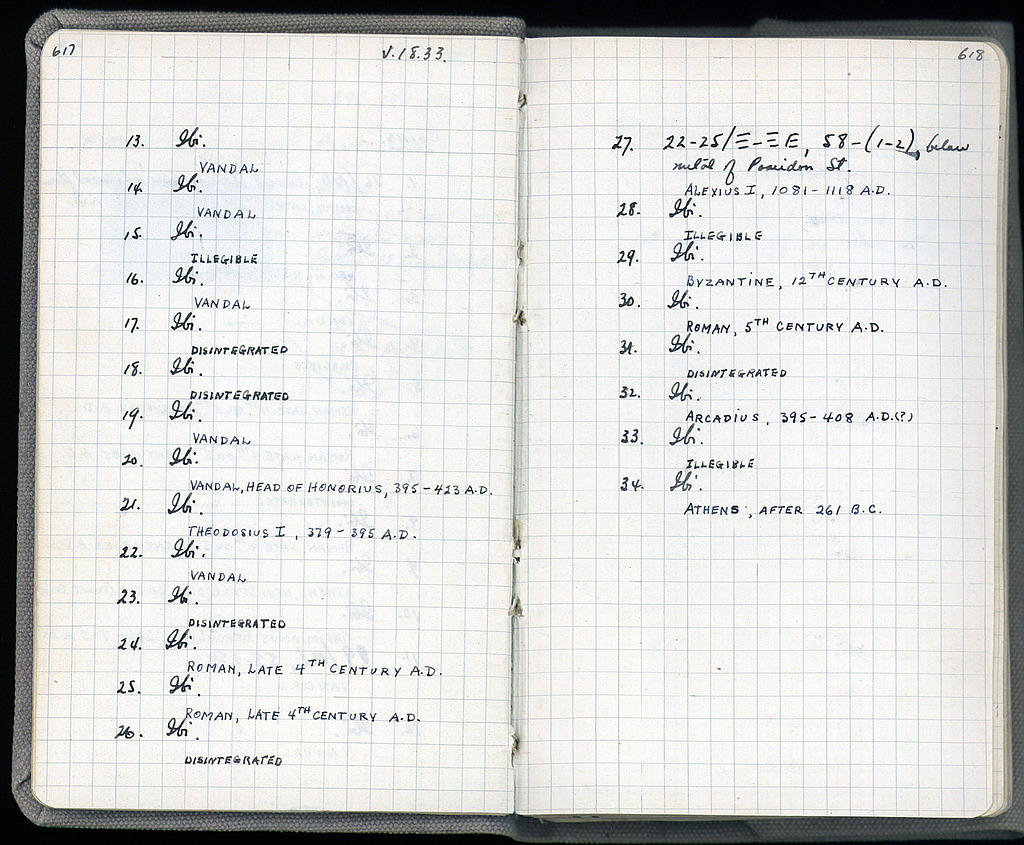 617
V.18.33.
13. Ibi.
VANDAL
14. Ibi.
VANDAL
15. Ibi.
ILLEGIBLE
16. Ibi.
VANDAL
17. Ibi.
DISINTEGRATED
18. Ibi.
DISINTEGRATED
19. Ibi.
VANDAL
20. Ibi.
VANDAL, HEAD OF HONORIUS, 395-423 A.D.
21. Ibi.
THEODOSIUS I, 379-395 A.D.
22. Ibi.
VANDAL
23. Ibi.
DISINTEGRATED
24. Ibi.
ROMAN, LATE 4TH CENTURY A.D.
25. Ibi.
ROMAN, LATE 4TH CENTURY A.D.
26. Ibi.
DISINTEGRATED
618
27. 22-25/Ξ-Ξ E, 58-(1-2), below
metal of Poseidon St.
ALEXIUS I, 1081-1118 A.D.
28. Ibi.
ILLEGIBLE
29. Ibi.
BYZANTINE, 12TH CENTURY A.D.
30. Ibi.
ROMAN, 5TH CENTURY A.D.
31. Ibi.
DISINTEGRATED
32. Ibi.
ARCADIUS, 395-408 A.D.(?)
33. Ibi.
ILLEGIBLE
34. Ibi.
ATHENS, AFTER 261 B.C.